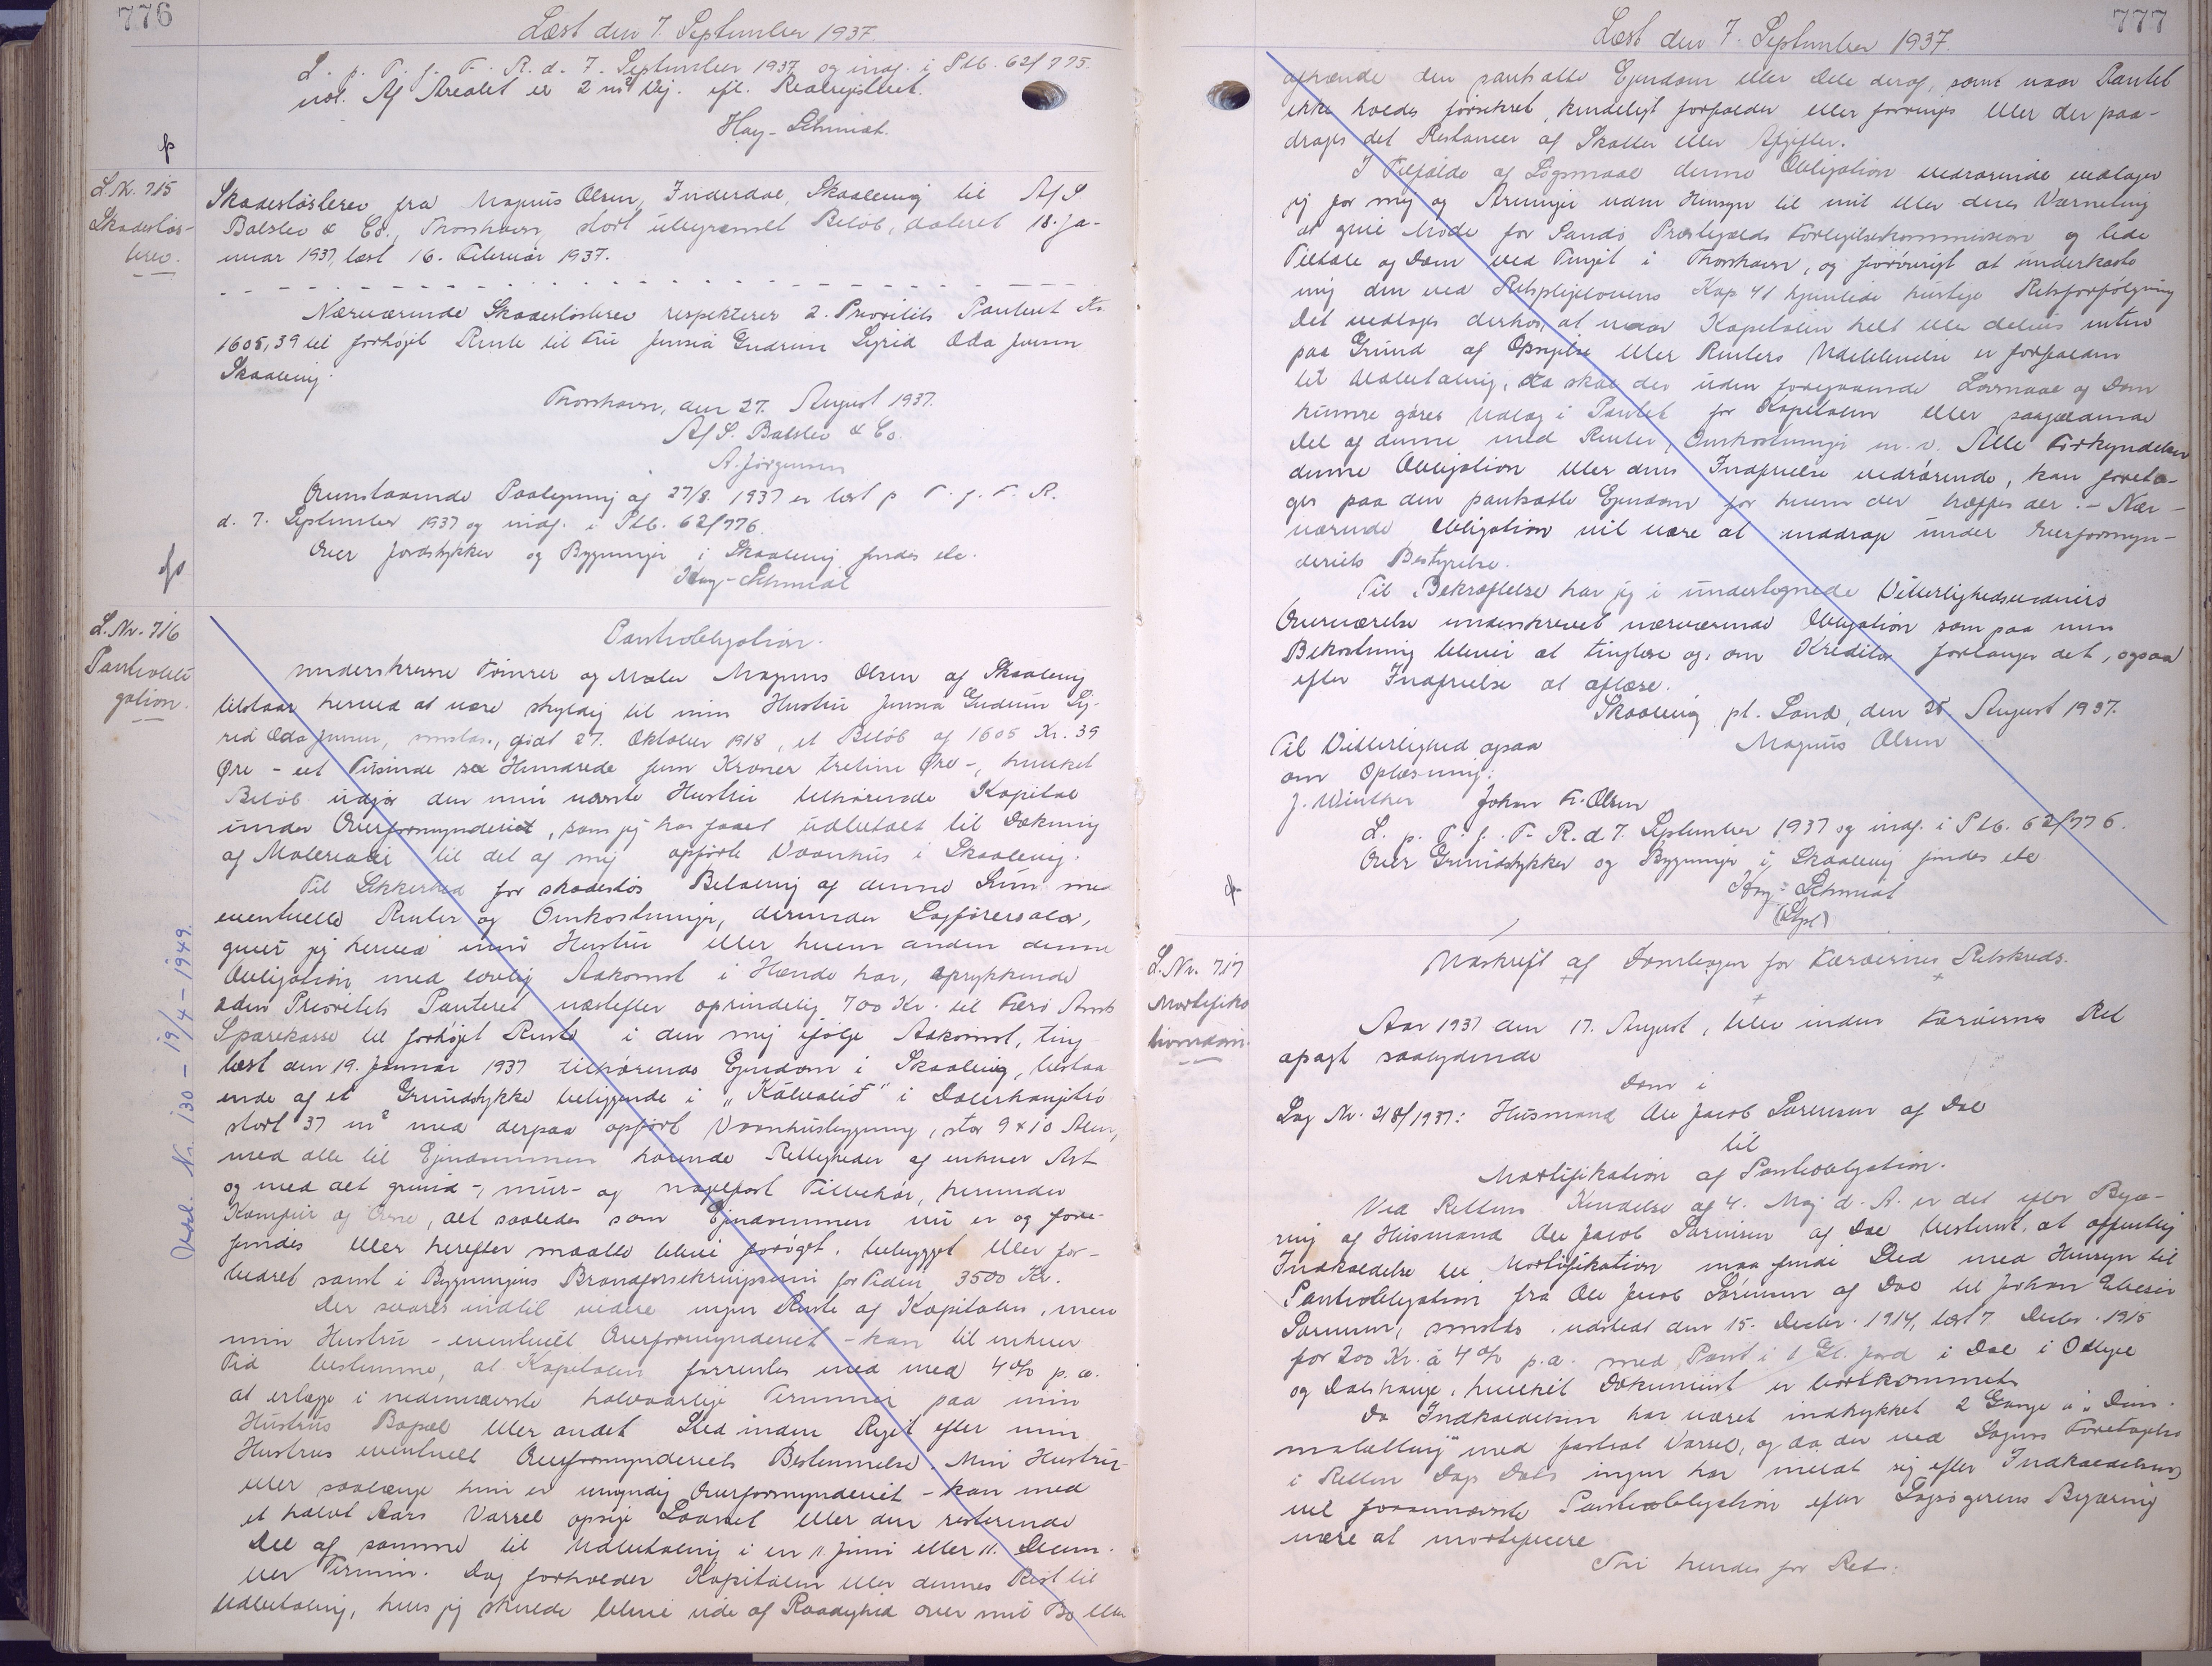 776
Læst den 7. September 1937.
L. p. T. f. F. R. d. 7. September 1937 og indf. i Ptb. 62/775.
Af Arealet er 2 m² Vej. ifl. Realregistret.
Hoy-Schmidt.
L.Nr. 715
Skadesløs-
brev.
Skadesløsbrev fra Magnus Olsen, Inderdal, Skaalevig til A/S
Balslev & Co., Thorshavn, stort ubegrænset Beløb, dateret 18. Ja-
nuar 1937, læst 16. Februar 1937.
Nærværende Skadesløsbrev respekterer 2. Prioritets Panteret Kr.
1605,39 til forhøjet Rente til Fru Jensia Gudrun Sigrid Oda Jensen
Skaalevig.
Thorshavn, den 27. August 1937.
A/S. Balslev & Co.
A. Jörgensen
Ovenstaaende Paategning af 27/8. 1937 er læst p T. f. F. R.
d. 7. September 1937 og indf. i Ptb. 62/776.
Over Jordstykker og Bygninger i Skaalevig findes ele.
Hoy-Schmidt
L.Nr. 716
Pantobli
gation.
Pantobligation.
underskrevne Tømrer og Maler Magnus Olsen af Skaalevig
tilstaar herved at være skyldig til min Hustru Jensia Gudrun Sig-
rid Oda Jensen, smstds., født 27. Oktober 1918, et Beløb af 1605 Kr. 39
Øre - eet Tusinde sex Hundrede fem Kroner tretine Øre -, hvilket
Beløb udgør den min nævnte Hustru tilhørende Kapital
under Overformynderiet, som jeg har faaet udbetalt til Dækning
af Materialer til det af mig opførte Vaanhus i Skaalevig.
Til Sikkerhed for skadesløs Betaling af denne Sum med
eventuelle Renter og Omkostninger, derunder Sagførersalær,
giver jeg herved min Hustru eller hvem anden denne
Obligation med lovlig Adkomst i Hænde har, oprykkende
anden Prioritets Panteret næstefter oprindelig 700 Kr. til Færø Amts
Sparekasse til forhøjet Rente i den mig ifølge Adkomst, ting
læst den 19. Januar 1937 tilhørende Ejendom i Skaalevig, bestaa
ende af et Grundstykke beliggende i "Kálvalið" i Dalshaugstrø
stort 37 m² med derpaa opført Vaanhusbygning, stor 9 x 10 Alen,
med alle til Ejendommen hørende Rettigheder af enhver Art
og med alt grund-, mur- og nagelfast Tilbehør, herunder
Komfur og Ovne, alt saaledes som Ejendommen nu er og fore-
findes eller herefter maatte blive forøget, bebygget eller for-
bedret samt i Bygningens Brandforsikringssum for Tiden 3500 Kr.
Der svares indtil videre ingen Rente af Kapitalen, men
min Hustru - eventuelt Overformynderiet - kan til enhver
Tid bestemme, at Kapitalen forrentes med med 4 % p. a.
at erlægge i nedennævnte halvaarlige Terminer paa min
Hustrus Bopæl eller andet Sted inden Riget efter min
Hustrus eventuelt Overformynderiets Bestemmelse. Min Hustru -
eller saalænge hun er umyndig Overformynderiet - kan med
et halvt Aars Varsel opsige Laanet eller den resterende
Del af samme til Udbetaling i en 11 Juni eller 11. Decem-
ber Termin. Dog forholder Kapitalen eller dennes Rest til
Udbetaling, hvis jeg skulde blive ude af Raadighed over mit Bo eller
Udsl. Nr. 130 - 19/4 - 1949.
777
Læst den 7. September 1937.
afhænde den pantsatte Ejendom eller Dele deraf, samt naar Pantet
ikke holdes forsikret, kendeligt forfalder eller forringes eller der paa-
drages det Restancer af Skatter eller Afgifter.
I Tilfælde af Søgsmaal denne Obligation vedrørende vedtager
jeg for mig og Arvinger uden Hensyn til mit eller deres Værneting
at give Møde for Sandø Præstegælds Forligelseskommission og lide
Tiltale og Dom ved Tinget i Thorshavn, og forøvrigt at underkaste
mig den ved Retsplejelovens Kap 41 hjemlede hurtige Retsforfølgning
Det vedtages derhos, at naar Kapitalen helt eller delvis enten
paa Grund af Opsigelse eller Renters Udeblivelse er forfalden
til Udbetaling, da skal der uden foregaaende Lovmaal og Dom
kunne gøres Udlæg i Pantet for Kapitalen eller paagældende
Del af denne med Renter, Omkostninger m. v. Alle Forkyndelser
denne Obligation eller dens Indfrielse vedrørende, kan foreta-
ges paa den pantsatte Ejendom for hvem der træffes der. - Nær-
værende Obligation vil være at inddrage under Overformyn-
deriets Bestyrelse.
Til Bekræftelse har jeg i undertegnede Vitterlighedsvidners
Overværelse underskrevet nærværende Obligation som paa min
Bekostning bliver at tinglæse og, om Kreditor forlanger det, ogsaa
efter Indfrielse at aflæse.
Skaalevig pt. Sand, den 25 August 1937.
Til Vitterlighed ogsaa Magnus Olsen
om Oplæsning:
J. Winther Johan Fr. Olsen
L. p. T. f. F. R. d. 7. September 1937 og indf. i Ptb. 62/776.
Over Grundstykker og Bygninger i Skaalevig findes ele
Hoy-Schmidt
L.Nr. 717
Mortifika
tionsdom.
Udskrift af Dombogen for Færøernes Retskreds.
Aar 1937 den 17. August, blev inden Færøernes Ret
afsagt saalydende
Dom i
Sag Nr. 218/1937: Husmand Ole Jacob Sørensen af Dal
til
Mortifikation af Pantobligation.
Ved Rettens Kendelse af 4. Maj d. A. er det efter Begæ-
ring af Husmand Ole Jacob Sørensen af Dal bestemt, at offentlig
Indkaldelse til Mortifikation maa finde Sted med Hensyn til
Pantobligation fra Ole Jacob Sørensen af Dal til Johan Eliesir
Sørensen, smstds. udstedt den 15. Decbr. 1914, læst 7. Decbr. 1915
for 200 Kr. á 4 % p.a. med Pant i 1 Gl. Jord i Dal i
og Dalshauge, hvilket Dokument er bortkommet.
Da Indkaldelsen har været indrykket 2 Gange i "Dim-
malætting" med fastsat Varsel, og da der ved Sagens Foretagelse
i Retten Dags Dato ingen har meldt sig efter Indkaldelsen,
vil foranævnte Pantobligation efter Sagsøgerens Begæring
være at mortificere
Thi kendes for Ret: